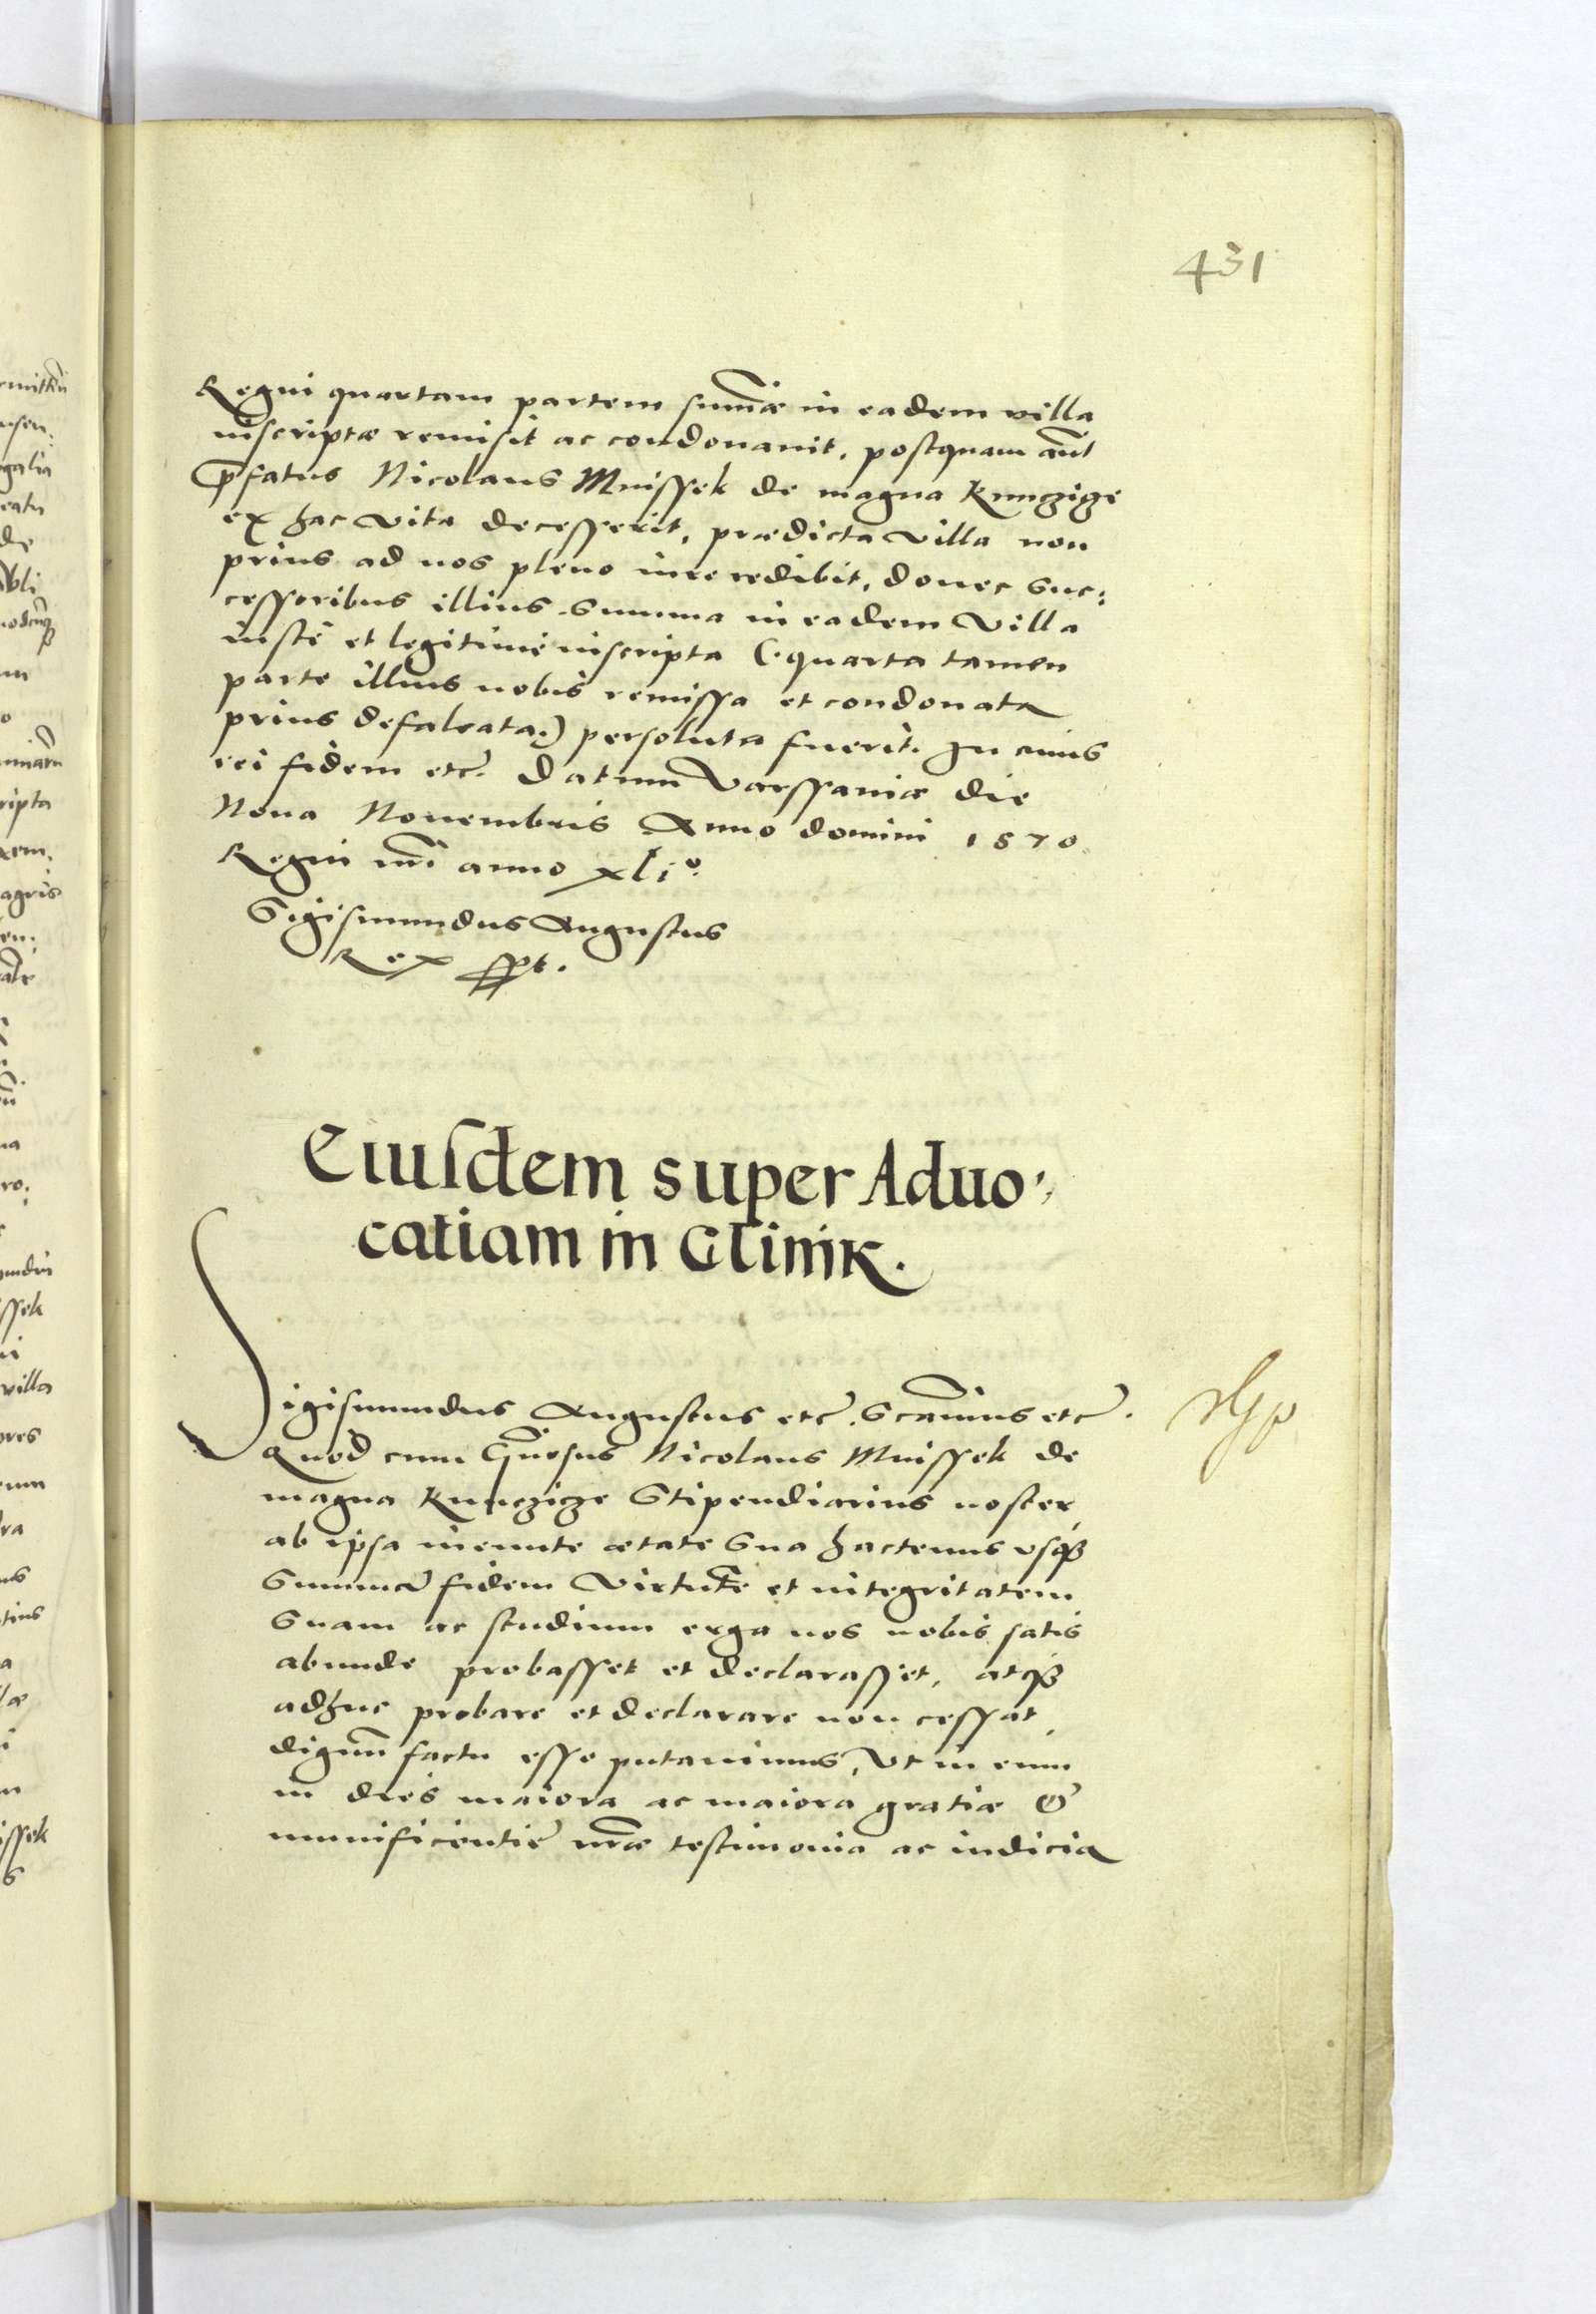 431
Regni quartam partem summæ in eadem villa
inscriptæ remisit ac condonauit, postquam aut
Pfatus Nicolaus Mnissek de magna Kunczicze
ex hac vita decesserit, prædicta villa non
prius ad nos pleno iure redibit, donec suc:
cessoribus illius summa in eadem villa
iuste et legitime inscripta (:quarta tamen
parte illius nobis remissa et condonata
prius defalcata:) persoluta fuerit. In cuius
rei fidem etc. Datum Varssauiæ die
Nona Nouembris Anno domini 1570
Regni nri anno xlio.
Sigismundus Augustus
Rex sspt.
Eiusdem super Aduo:
catiam in Glinik.
Sigismundus Augustus etc. Scamus etc.
Quod cum Gnosus Nicolaus Mnissek de
magna Kunczicze Stipendiarius noster
ab ipsa ineunte ætate sua hactenus vsqꝫ
Summã fidem virtutẽ et integritatem
suam ac studium erga nos nobis satis
abunde probasset et declarasset, atqꝫ
adhuc probare et declarare non cessat,
dignũ factu esse putauimus, Vt in eum
in dies maiora ac maiora gratiæ &
munificentię nræ testimonia ac indicia